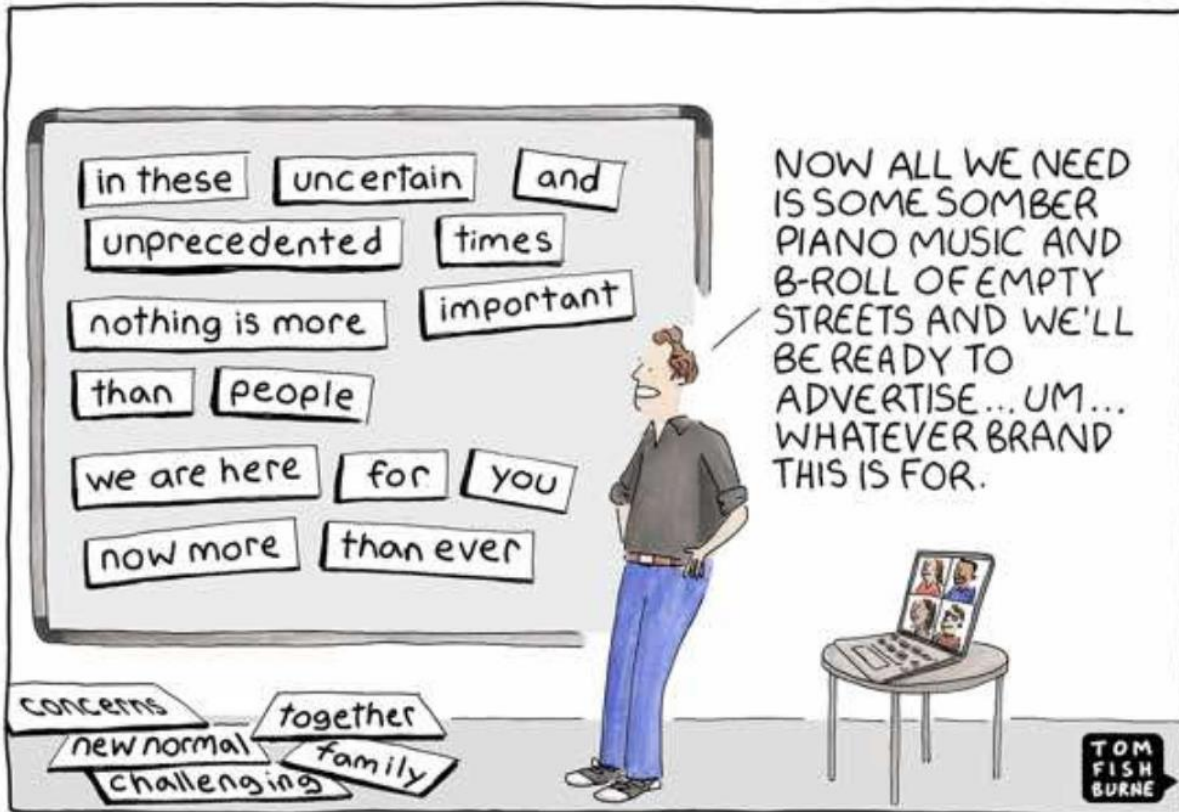 in these uncertain and
unprecedented times
nothing is more important
than people
we are here for you
now more than ever
NOW ALL WE NEED
IS SOME SOMBER
PIANO MUSIC AND
B-ROLL OF EMPTY
STREETS AND WE'LL
BE READY TO
ADVERTISE...UM...
WHATEVER BRAND
THIS IS FOR.
concerns
together
new normal
family
challenging
TOM
FISH
BURNE